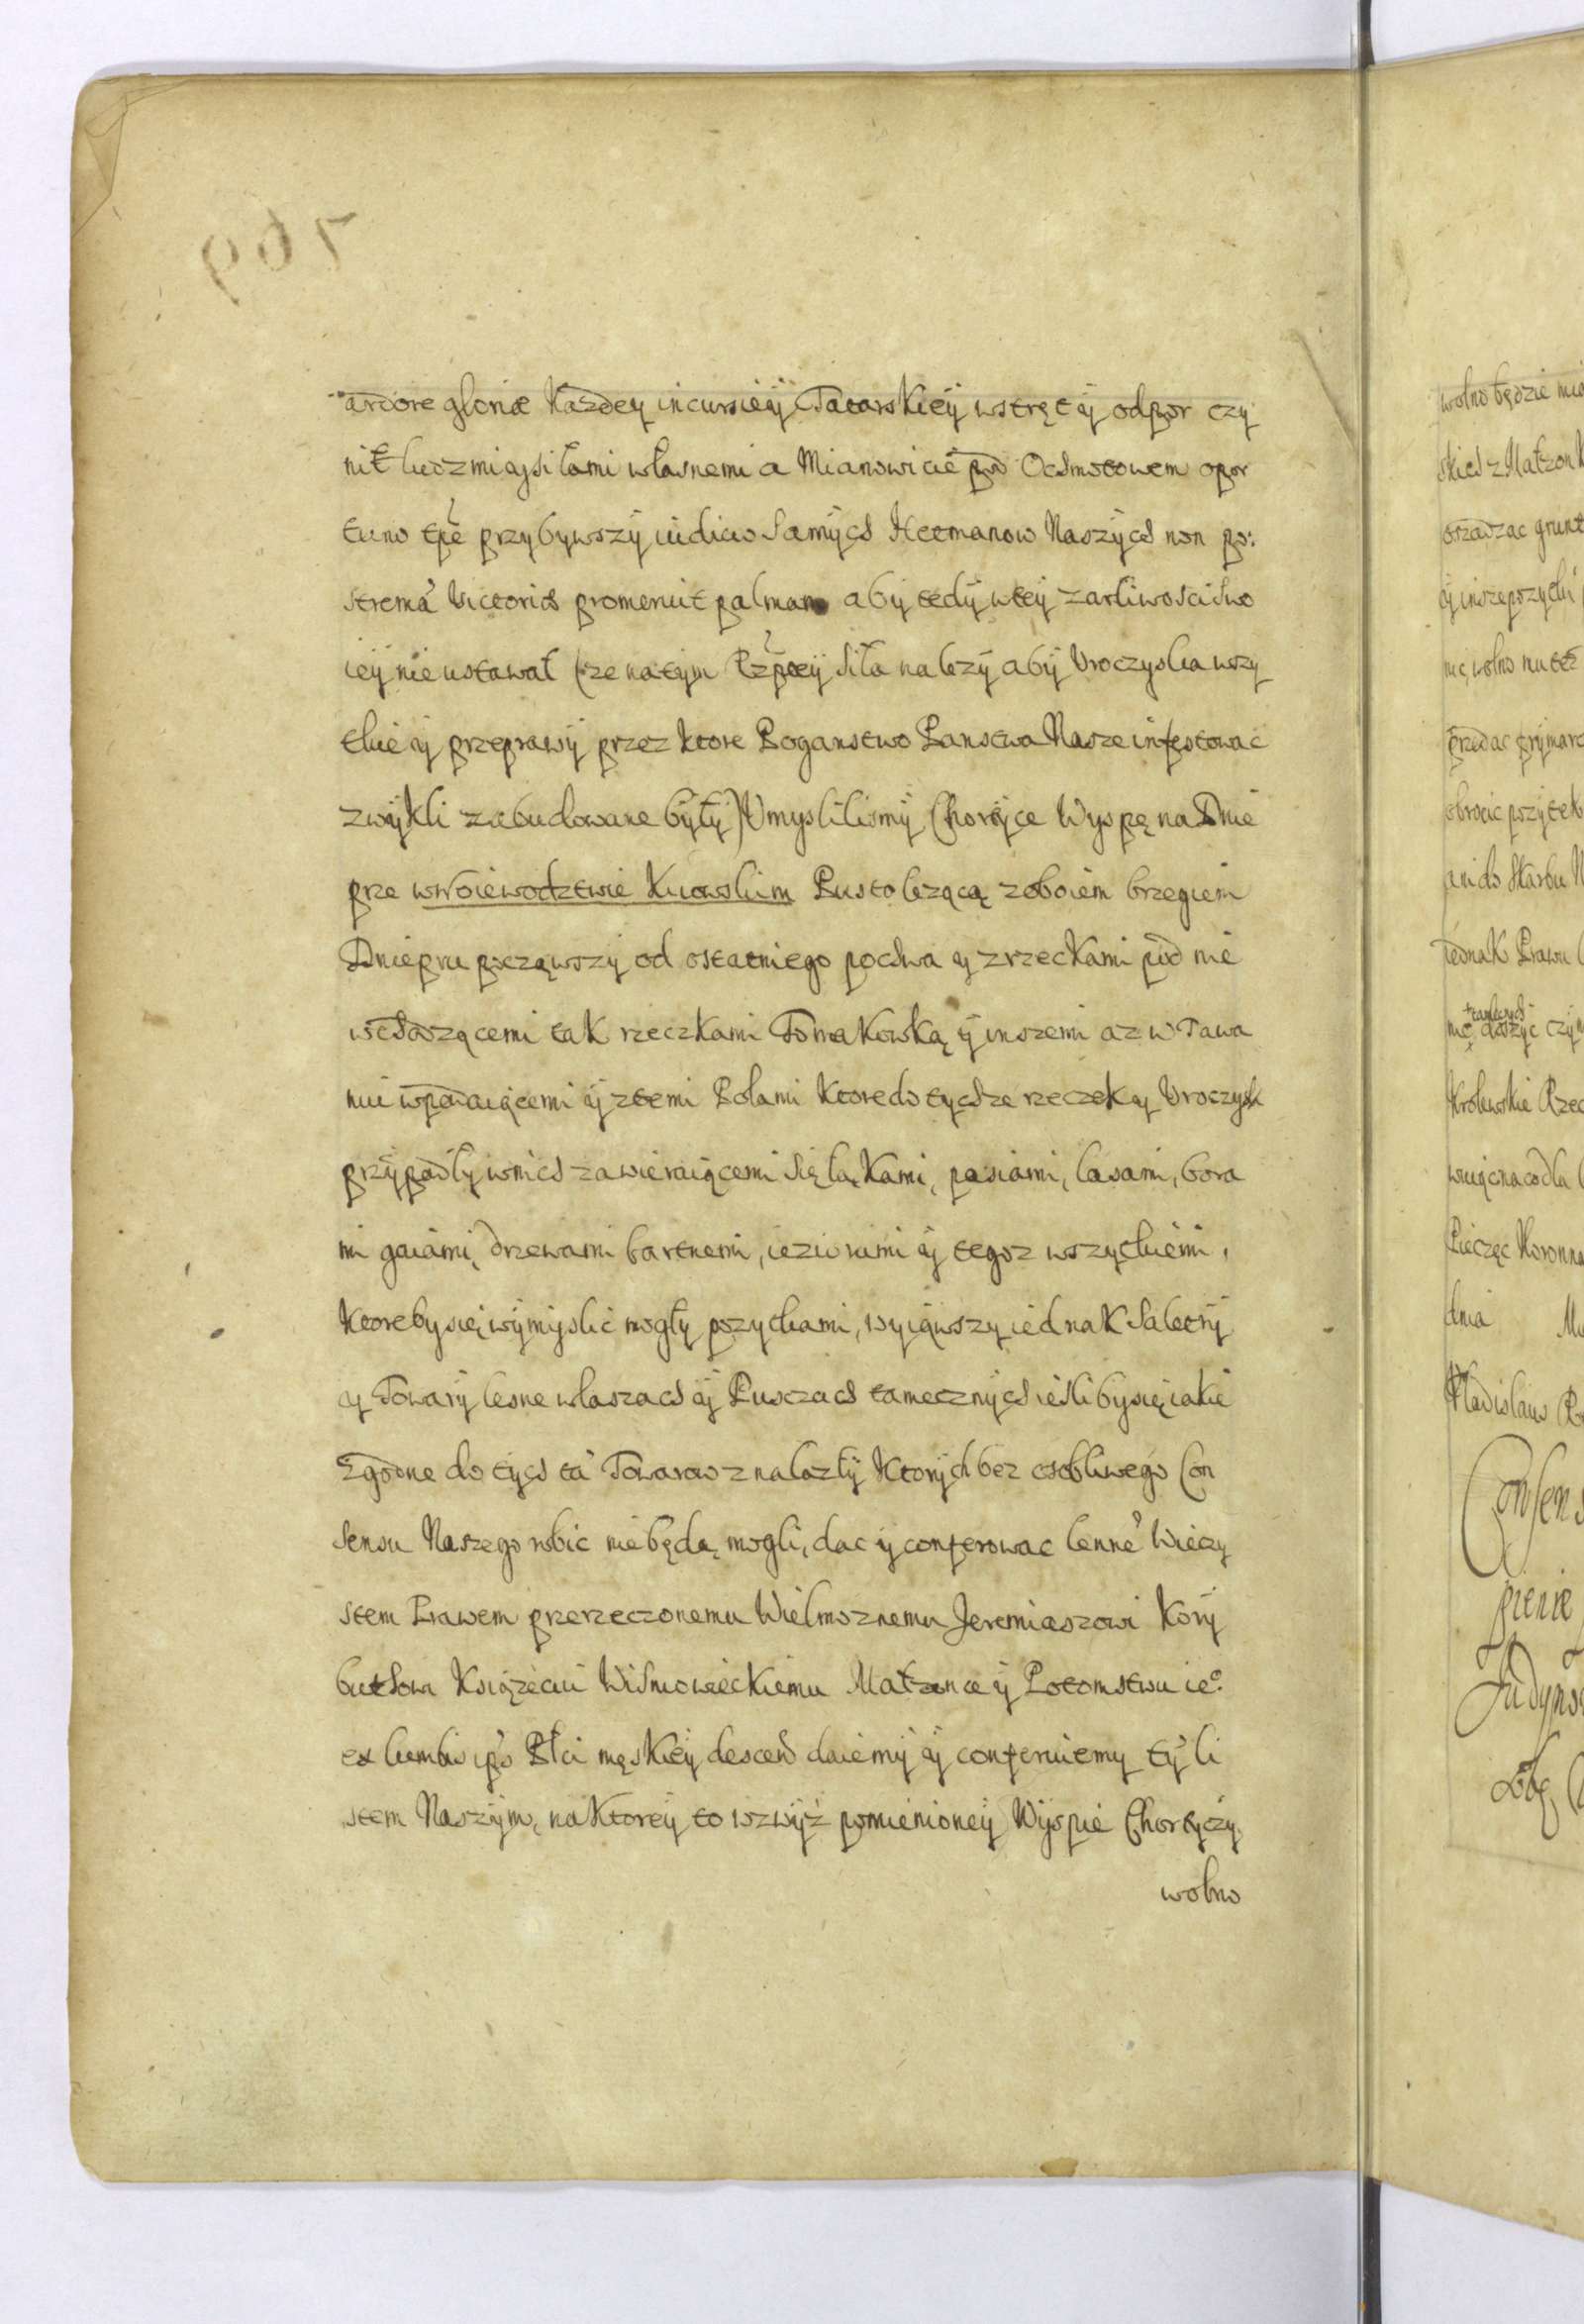 769
ardore gloriæ Kazdey incursieÿ Tatarskieÿ wstręt ÿ odpor czy
nił ludzmi aÿ siłami własnemi a Mianowicie pod Ochmotowem opor
tuno tpe przybywszÿ iudicio samÿch Hetmanow Naszÿch non po:
strema Victoriæ promeruit palmam abÿ tedÿ wteÿ zarliwosci swo
ieÿ nie ustawał (ze natÿm Rzpteÿ siła nalezÿ abÿ Vroczyska wszy
tkie ÿ przeprawÿ przez ktore Poganstwo Panstwa Nasze infestowac
zwÿkli zabudowane bÿłÿ) Vmyslilismÿ Chortÿce Wyspę na Dnie
prze wWoiewodztwie Kiiowskim Pusto lezącą zoboiem brzegiem
Dniepru począwszÿ od ostatniego pochwa ÿ zrzeckami pod nie
wchodzącemi tak rzeczkami Tomakowką ÿ inszemi az w Tawa
nui wpadaiącemi ÿ ztemi Polami ktore do tychze rzeczek ÿ Vroczysk
przÿpadłÿ wnich zawieraiącemi się łąkami, pasiami, lasami, bora
mi gaiami, drzewami bartnemi, ieziorami ÿ tegoz wszystkiemi,
Ktoreby się wÿmÿslic mogłÿ pozytkami, wyiąwszy iednak Saletrÿ
ÿ Towarÿ lesne wlaszach ÿ Pusczach tamecznÿch iesliby się iakie
zgodne do tych ta Towarow znalazłÿ Ktorÿch bez osobliwego Con
sensu Naszego robic nie będą mogli, dac ÿ conferowac lenne Wieczy
stem Prawem przerzeczonemu Wielmoznemu Jeremiaszowi Korÿ
buthowi Xiązęciu Wisniowieckiemu Małzonce ÿ Potomstwu ie°
ex lumbis ips Płci męskieÿ descend daiemÿ ÿ conferuiemy tÿ li
stem Naszÿm, na Ktoreÿ to wzwÿż pomienioneÿ Wÿspie Chortyczy
wolno
wolno będzie
skich z Małzonk
ÿ insze pozytki
ne, wolno mu tez
ani do Skarbu N
iednak Prawu
tamtych
dosÿc czÿ
Krolewskie Rzec
Pieczęc Koronna
dnia
Vladislaus R
Consens